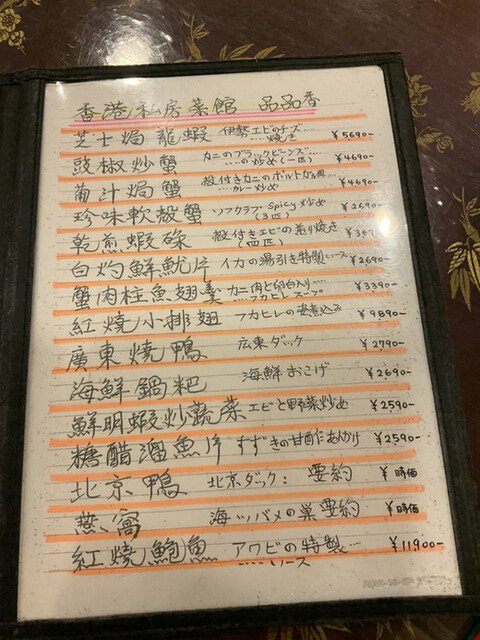 香港私房菜館 品品香
芝士焗龍蝦 伊勢エビのチーズ焼き ¥5690-
豉椒炒蟹 カニのブラックビーンズの炒め(一匹) ¥4690-
葡汁焗蟹 殻付きカニのポルトガル風カレー炒め ¥4690-
珍味軟殻蟹 ソフクラブ・Spicy炒め(3匹) ¥2690-
乾煎蝦碌 殻付きエビの煎り焼き(四匹)
白灼鮮魷片 イカの湯引き特製ソース ¥2690-
蟹肉柱魚翅羹 カニ肉と卵白入りフカヒレスープ ¥3390-
紅燒小排翅 フカヒレの姿煮込み ¥9890-
廣東燒鴨 広東ダック ¥2790-
海鮮鍋粑 海鮮おこげ ¥2690-
鮮明蝦炒蔬菜 エビと野菜炒め ¥2590-
糖醋溜魚片 すずきの甘酢あんかけ ¥2590-
北京鴨 北京ダック: 要約 ¥時価
燕窩 海ツバメの巣 要約 ¥時価
紅燒鮑魚 アワビの特製ソース ¥11900-